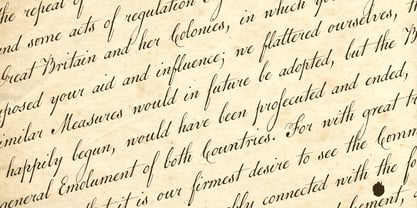 the repeal of
and some acts of regulation
Great Britain and her Colonies, in which you
posed your aid and influence; we flattered ourselves,
imilar Measures would in future be adopted, but the B
happily begun, would have been prosecuted and ended,
general Emolument of both Countries. For with great
that it is our firmest desire to see the
bly connected with the